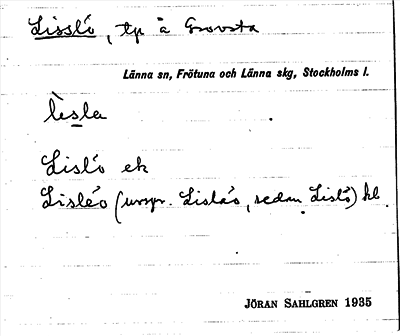 Lissló, tp å Grovsta
Länna sn, Frötuna och Länna skg, Stockholms l.
lèsla
Lisló ek
Lisléo (urspr. Lisláo, sedan Lisló) kl.
JÖRAN SAHLGREN 1935